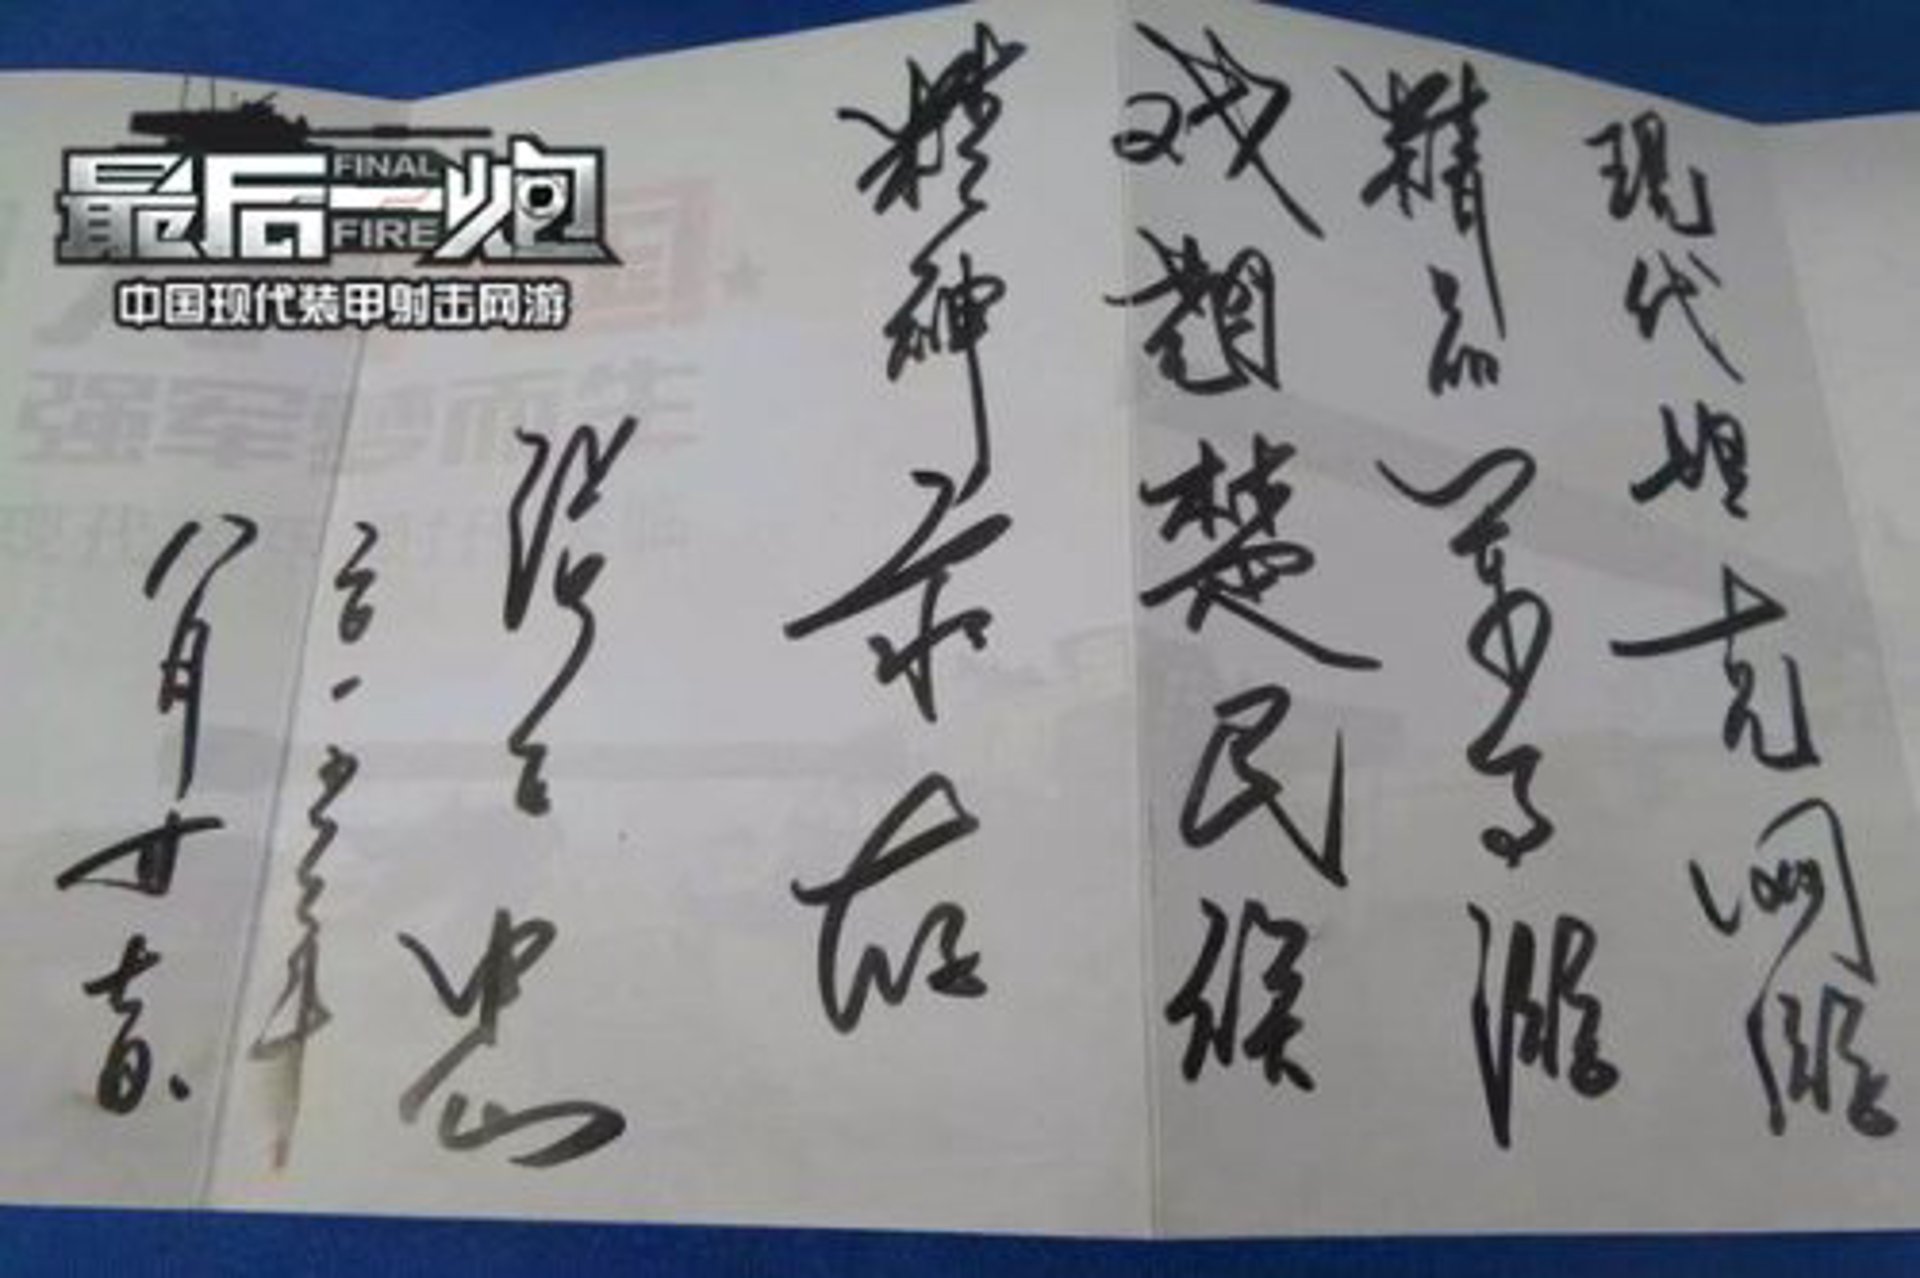 最后一炮
FINAL
FIRE
中国现代装甲射击网游
现代坦克网游
精品军事游
戏翘楚民族
精神永存
张召忠
二〇一五年
八月廿